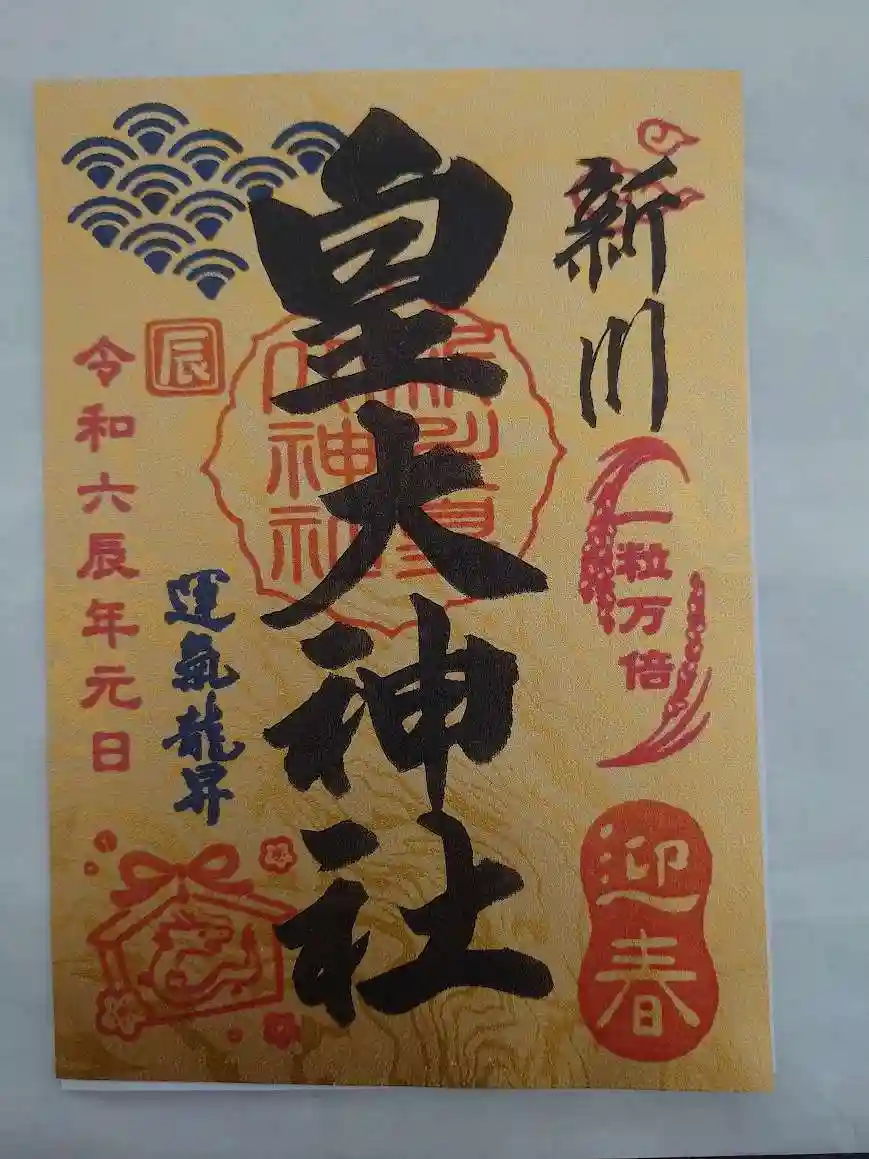 新川
一粒万倍
迎春
皇大神社
新川皇大神社
運氣龍昇
辰
令和六辰年元日